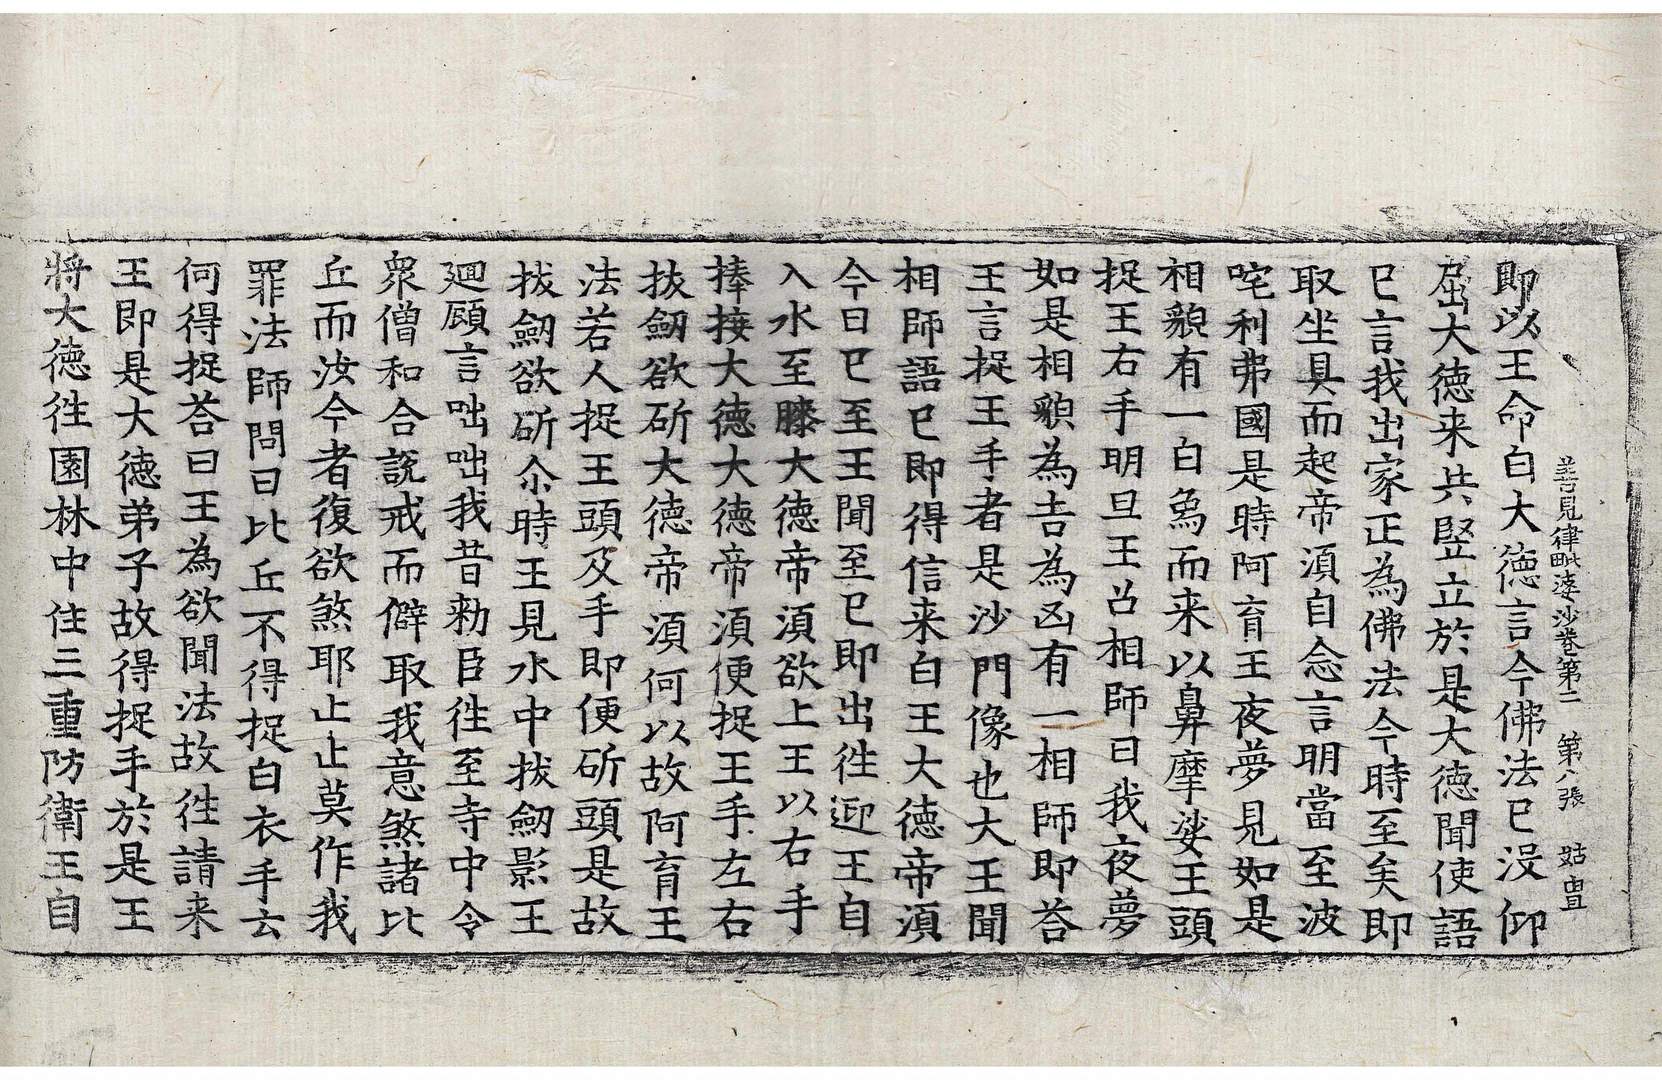 善見律毗婆沙卷第二 第八張 姑
即以王命白大德言今佛法已没仰
屈大德来共竪立於是大德聞使語
已言我出家正為佛法今時至矣即
取坐具而起帝湏自念言明當至波
咤利弗國是時阿育王夜夢見如是
相䫉有一白烏而来以鼻摩娑王頭
捉王右手明旦王召相師曰我夜夢
如是相䫉為吉為凶有一相師即荅
王言捉王手者是沙門像也大王聞
相師語已即得信来白王大德帝湏
今日已至王聞至已即出徃迎王自
入水至膝大德帝湏欲上王以右手
捧接大德大德帝湏便捉王手左右
拔劒欲斫大德帝湏何以故阿育王
法若人捉王頭及手即便斫頭是故
拔劒欲斫尒時王見水中拔劒影王
迴顧言咄咄我昔勑臣徃至寺中令
衆僧和合説戒而僻取我意煞諸比
丘而汝今者復欲煞耶止止莫作我
罪法師問曰比丘不得捉白衣手云
何得捉荅曰王為欲聞法故徃請来
王即是大德弟子故得捉手於是王
將大德徃園林中住三重防衛王自